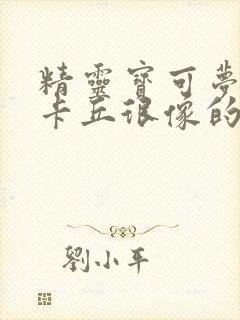 精靈寶可夢
卡丘很像的
劉小平